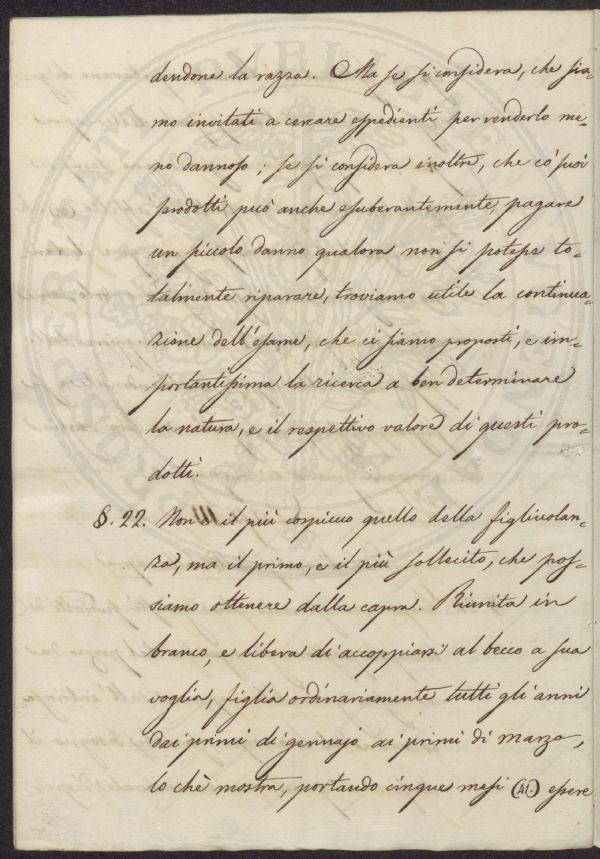 dendone la razza. Ma se si considera, che sia-
mo invitati a cercare espedienti per renderlo me-
no dannoso; se si considera inoltre, che co' suoi
prodotti può anche esuberantemente, pagare
un piccolo danno qualora non si potesse to-
talmente riparare, troviamo utile la continua-
zione dell'esame, che ci siamo proposti, e im-
portantissima la ricerca a ben determinare
la natura, e il respettivo valore di questi pro-
dotti.
§. 22. Non è il più cospicuo quello della figliuolan-
za, ma il primo, e il più sollecito, che pos-
siamo ottenere dalla capra. Riunita in
branco, e libera di accoppiarsi al becco a sua
voglia, figlia ordinariamente tutti gli anni
dai primi di gennajo ai primi di marzo,
lo chè mostra, portando cinque mesi (41.) essere